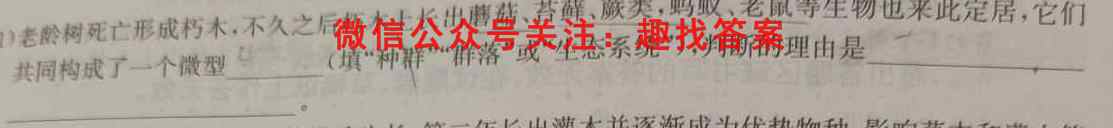 1)老龄树死亡形成朽木,不久之后朽木上长出蘑菇、苔藓、蕨类,蚂蚁、老鼠等生物也来此定居,它们
微信公众号关注:趣找答案
共同构成了一个微型______(填“种群”“群落”或“生态系统”),判断的理由是______
______。
第二年长出灌木并逐渐成为优势物种,影响草本和